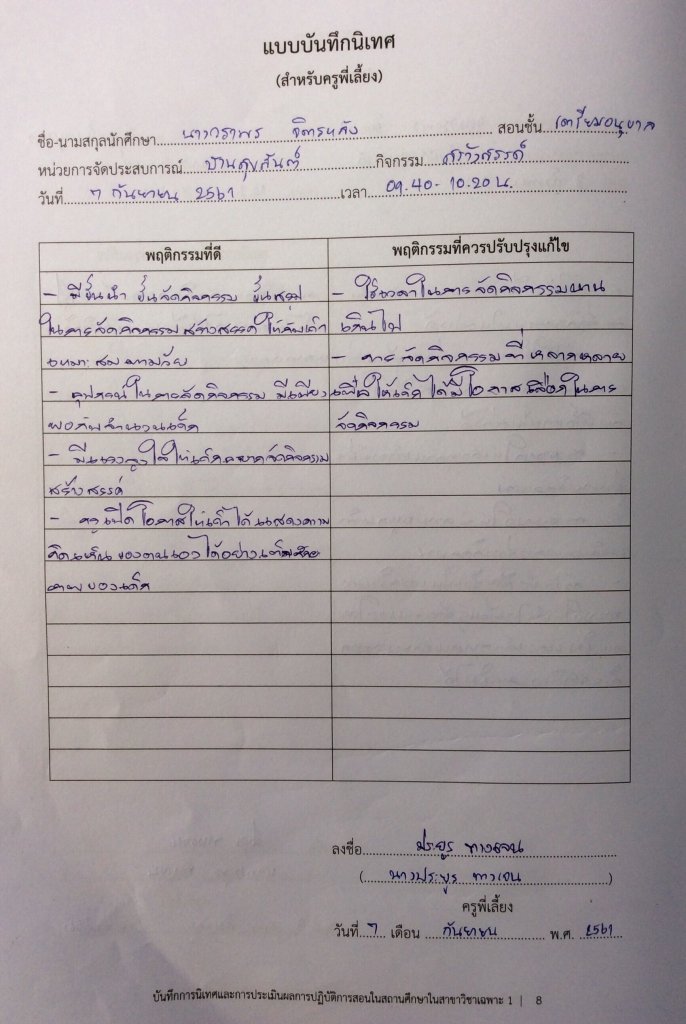 แบบบันทึกนิเทศ
(สำหรับครูพี่เลี้ยง)
ชื่อ-นามสกุลนักศึกษา นางวราพร สอนชั้น เตรียมอนุบาล
หน่วยการจัดประสบการณ์ บ้านสุขสันต์ กิจกรรม สร้างสรรค์
วันที่ 7 กันยายน 2561 เวลา 09.40 - 10.20 น.
พฤติกรรมที่ดี พฤติกรรมที่ควรปรับปรุงแก้ไข
- มีขั้นนำ ขั้นจัดกิจกรรม ขั้นสรุป
ในการจัดกิจกรรมสร้างสรรค์ ให้กับเด็ก
เหมาะสมตามวัย
- อุปกรณ์ในการจัดกิจกรรม มีเพียง
พอกับจำนวนเด็ก
- มีแรงจูงใจให้เด็กอยากจัดกิจกรรม
สร้างสรรค์
- ครูเปิดโอกาสให้เด็กได้แสดงความ
คิดเห็นของตนเองได้อย่างเต็ม
ของเด็ก
- ใช้เวลาในการจัดกิจกรรมนาน
เกินไป
- การจัดกิจกรรมที่หลากหลาย
เพื่อให้เด็กได้มีโอกาสเลือกในการ
จัดกิจกรรม
ลงชื่อ ประยูร
(นางประยูร)
ครูพี่เลี้ยง
วันที่ 7 เดือน กันยายน พ.ศ. 2561
บันทึกการนิเทศและการประเมินผลการปฏิบัติการสอนในสถานศึกษาในสาขาวิชาเฉพาะ 1 | 8